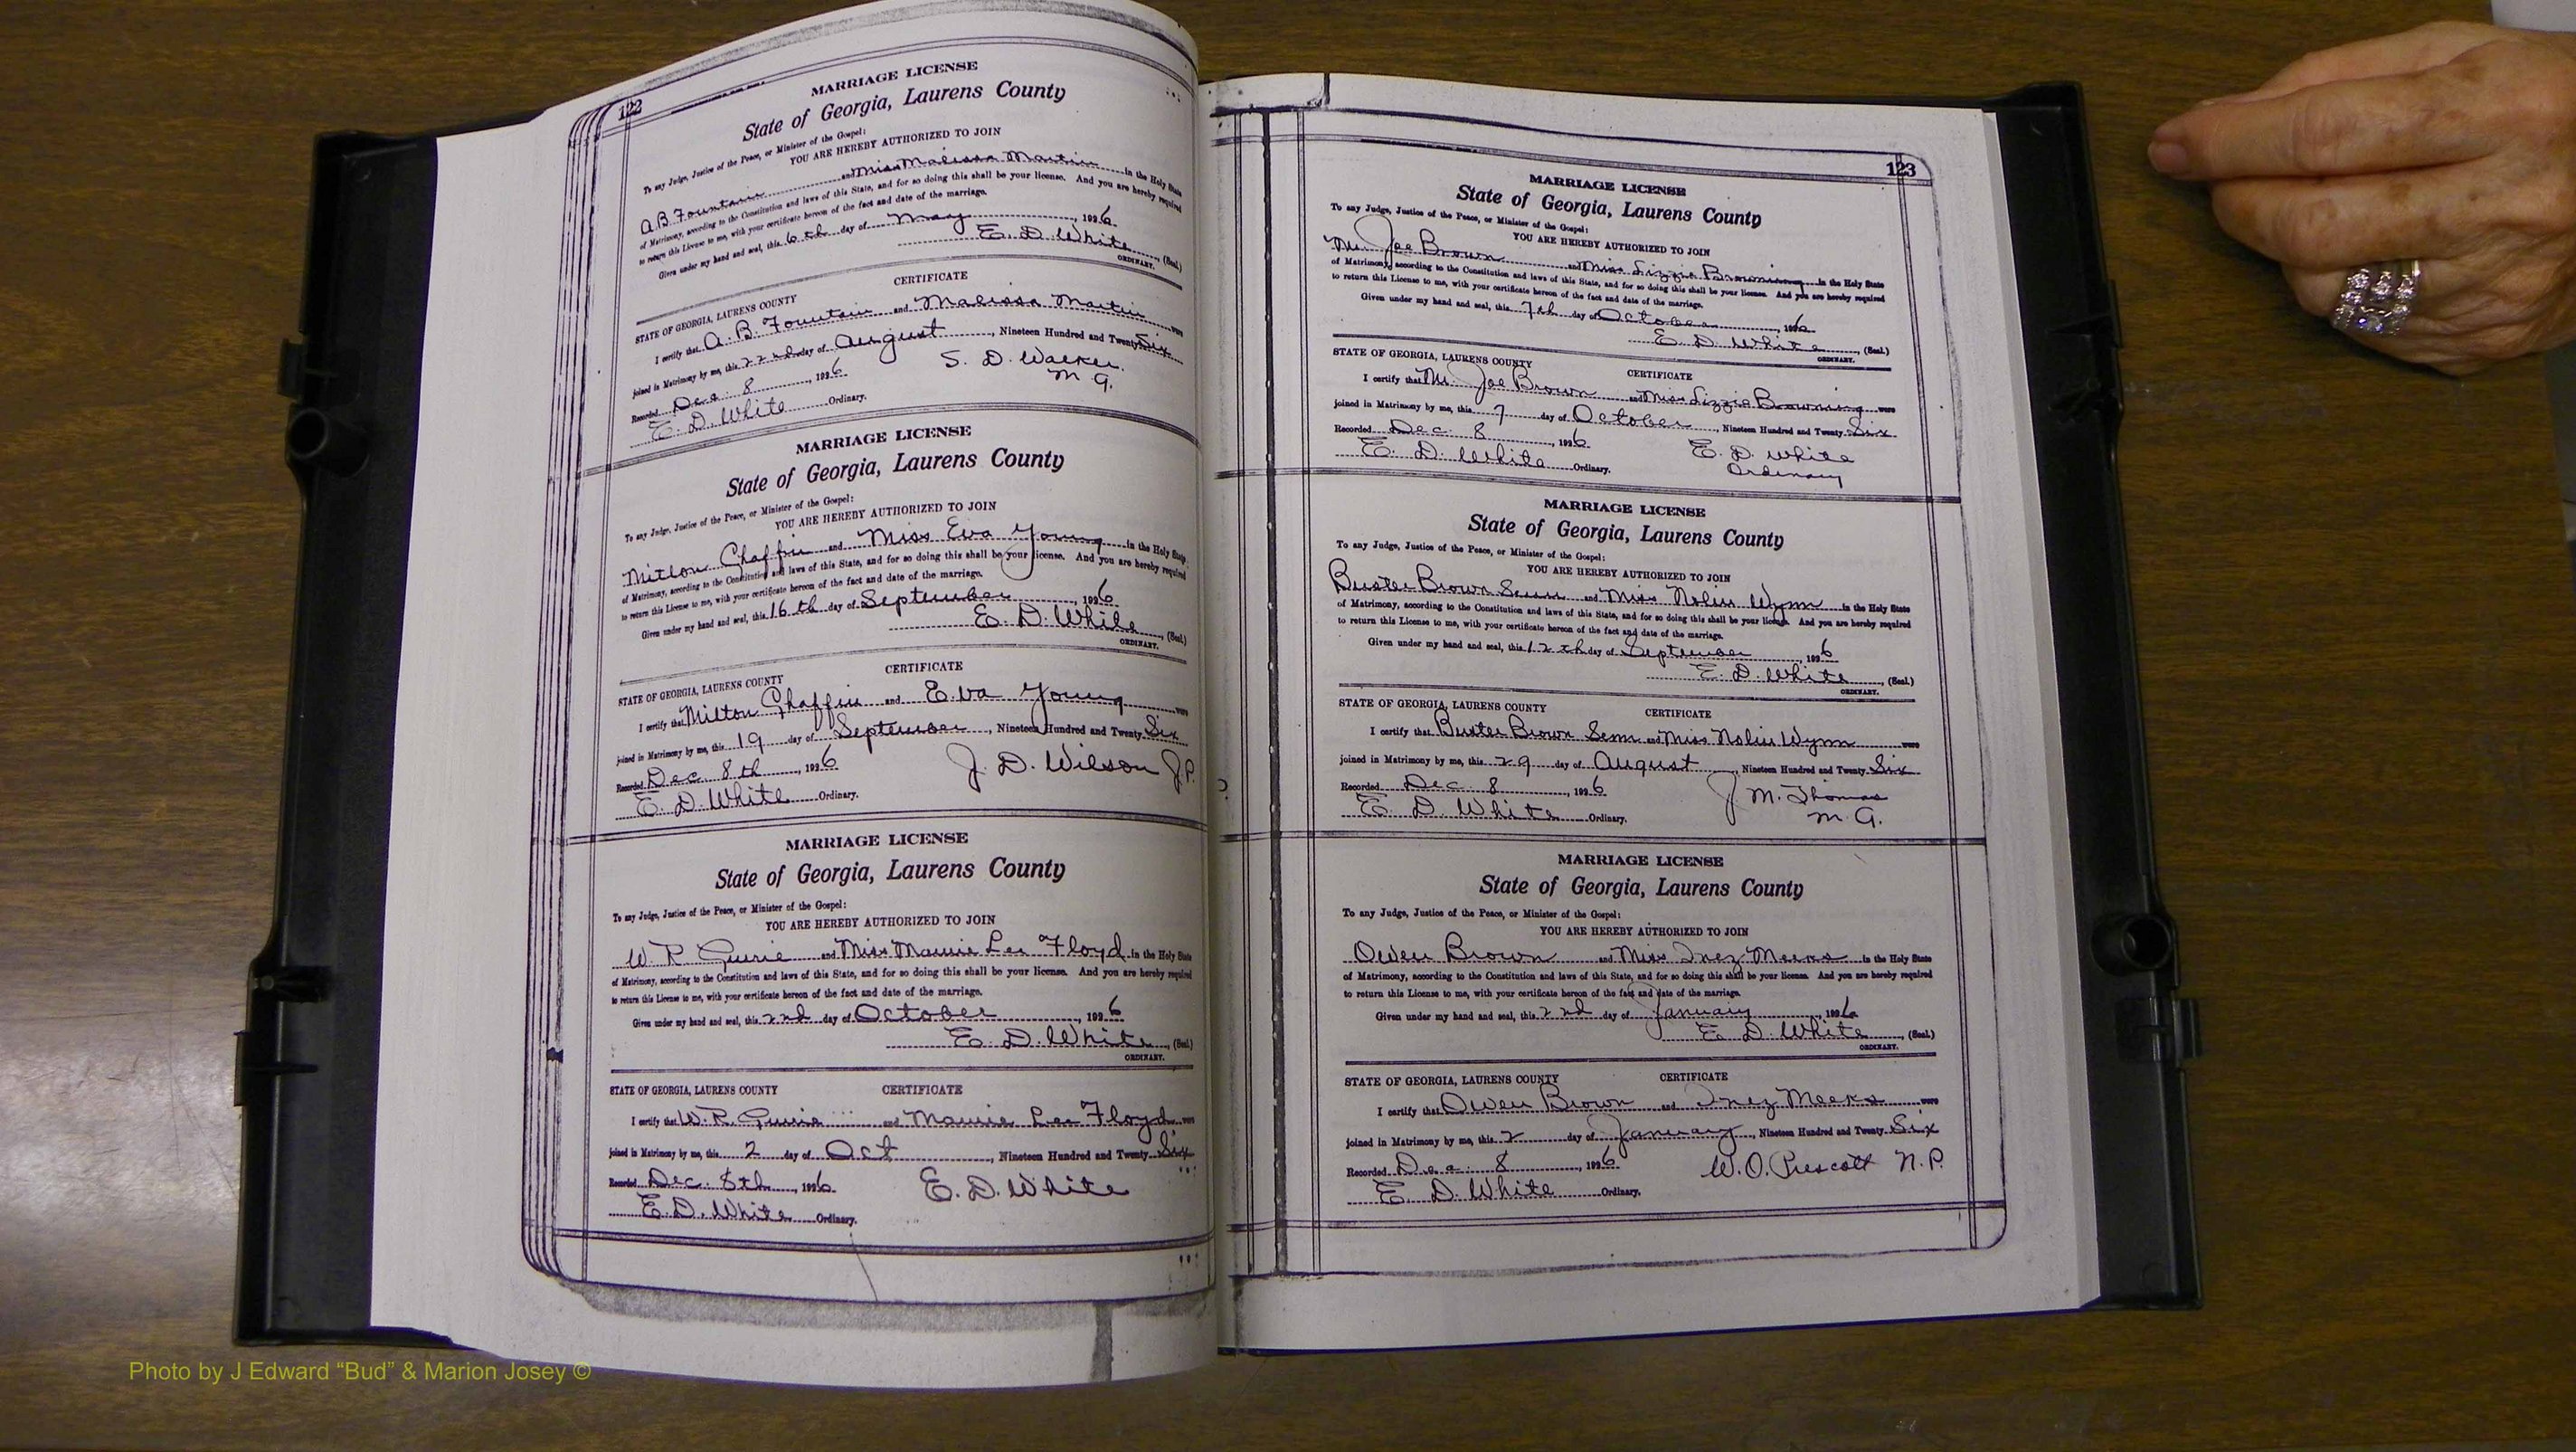 122
MARRIAGE LICENSE
State of Georgia, Laurens County
To any Judge, Justice of the Peace, or Minister of the Gospel:
YOU ARE HEREBY AUTHORIZED TO JOIN
A. B. Fountain and Miss Malissa Martin in the Holy State
of Matrimony, according to the Constitution and laws of this State, and for so doing this shall be your license. And you are hereby required
to return this License to me, with your certificate hereon of the fact and date of the marriage.
Given under my hand and seal, this 6th day of May, 1926
E. D. White, (Seal.)
ORDINARY.
CERTIFICATE
STATE OF GEORGIA, LAURENS COUNTY
I certify that A. B. Fountain and Malissa Martin were
joined in Matrimony by me, this 22nd day of August, Nineteen Hundred and Twenty Six
Recorded Dec 8, 1926 S. D. Walker
E. D. White Ordinary. M. G.
MARRIAGE LICENSE
State of Georgia, Laurens County
To any Judge, Justice of the Peace, or Minister of the Gospel:
YOU ARE HEREBY AUTHORIZED TO JOIN
Milton Chaffin and Miss Eva Young in the Holy State
of Matrimony, according to the Constitution and laws of this State, and for so doing this shall be your license. And you are hereby required
to return this License to me, with your certificate hereon of the fact and date of the marriage.
Given under my hand and seal, this 16th day of September, 1926
E. D. White, (Seal.)
ORDINARY.
CERTIFICATE
STATE OF GEORGIA, LAURENS COUNTY
I certify that Milton Chaffin and Eva Young were
joined in Matrimony by me, this 19 day of September, Nineteen Hundred and Twenty Six
Recorded Dec 8th, 1926 J. D. Wilson J.P.
E. D. White Ordinary.
MARRIAGE LICENSE
State of Georgia, Laurens County
To any Judge, Justice of the Peace, or Minister of the Gospel:
YOU ARE HEREBY AUTHORIZED TO JOIN
W. R. and Miss Lee Floyd in the Holy State
of Matrimony, according to the Constitution and laws of this State, and for so doing this shall be your license. And you are hereby required
to return this License to me, with your certificate hereon of the fact and date of the marriage.
Given under my hand and seal, this 2nd day of October, 1926
E. D. White, (Seal.)
ORDINARY.
STATE OF GEORGIA, LAURENS COUNTY CERTIFICATE
I certify that W. R. and Lee Floyd were
joined in Matrimony by me, this 2 day of Oct, Nineteen Hundred and Twenty Six
Recorded Dec. 8th, 1926 E. D. White
E. D. White Ordinary.
123
MARRIAGE LICENSE
State of Georgia, Laurens County
To any Judge, Justice of the Peace, or Minister of the Gospel:
YOU ARE HEREBY AUTHORIZED TO JOIN
Mr. Joe Brown and Miss Lizzie Browning in the Holy State
of Matrimony, according to the Constitution and laws of this State, and for so doing this shall be your license. And you are hereby required
to return this License to me, with your certificate hereon of the fact and date of the marriage.
Given under my hand and seal, this 7th day of October, 1926
E. D. White, (Seal.)
ORDINARY.
STATE OF GEORGIA, LAURENS COUNTY
CERTIFICATE
I certify that Mr. Joe Brown and Miss Lizzie Browning were
joined in Matrimony by me, this 7 day of October, Nineteen Hundred and Twenty Six
Recorded Dec. 8, 1926 E. D. White
E. D. White Ordinary. Ordinary
MARRIAGE LICENSE
State of Georgia, Laurens County
To any Judge, Justice of the Peace, or Minister of the Gospel:
YOU ARE HEREBY AUTHORIZED TO JOIN
Buster Brown and Miss Wynn in the Holy State
of Matrimony, according to the Constitution and laws of this State, and for so doing this shall be your license. And you are hereby required
to return this License to me, with your certificate hereon of the fact and date of the marriage.
Given under my hand and seal, this 12th day of September, 1926
E. D. White, (Seal.)
ORDINARY.
STATE OF GEORGIA, LAURENS COUNTY
CERTIFICATE
I certify that Buster Brown and Miss Wynn were
joined in Matrimony by me, this 29 day of August, Nineteen Hundred and Twenty Six
Recorded Dec 8, 1926 J. M. Thomas
E. D. White Ordinary. M. G.
MARRIAGE LICENSE
State of Georgia, Laurens County
To any Judge, Justice of the Peace, or Minister of the Gospel:
YOU ARE HEREBY AUTHORIZED TO JOIN
Owen Brown and Miss Inez Meeks in the Holy State
of Matrimony, according to the Constitution and laws of this State, and for so doing this shall be your license. And you are hereby required
to return this License to me, with your certificate hereon of the fact and date of the marriage.
Given under my hand and seal, this 2nd day of January, 1926
E. D. White, (Seal.)
ORDINARY.
STATE OF GEORGIA, LAURENS COUNTY CERTIFICATE
I certify that Owen Brown and Inez Meeks were
joined in Matrimony by me, this 2 day of January, Nineteen Hundred and Twenty Six
Recorded Dec 8, 1926 W. O. Prescott N. P.
E. D. White Ordinary.
Photo by J Edward “Bud” & Marion Josey ©